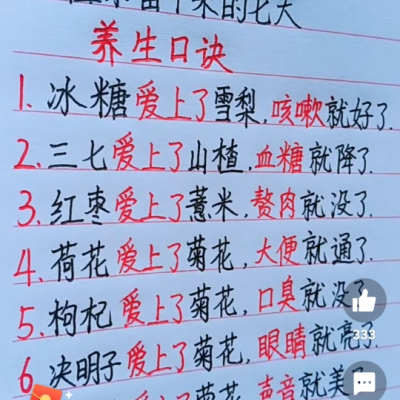 的七天
养生口诀
1. 冰糖爱上了雪梨,咳嗽就好了.
2. 三七爱上了山楂,血糖就降了.
3. 红枣爱上了薏米,赘肉就没了.
4. 荷花爱上了菊花,大便就通了.
5. 枸杞爱上了菊花,口臭就没了.
333
6 决明子爱上了菊花,眼睛就亮了.
爱上了菊花,声音就美了